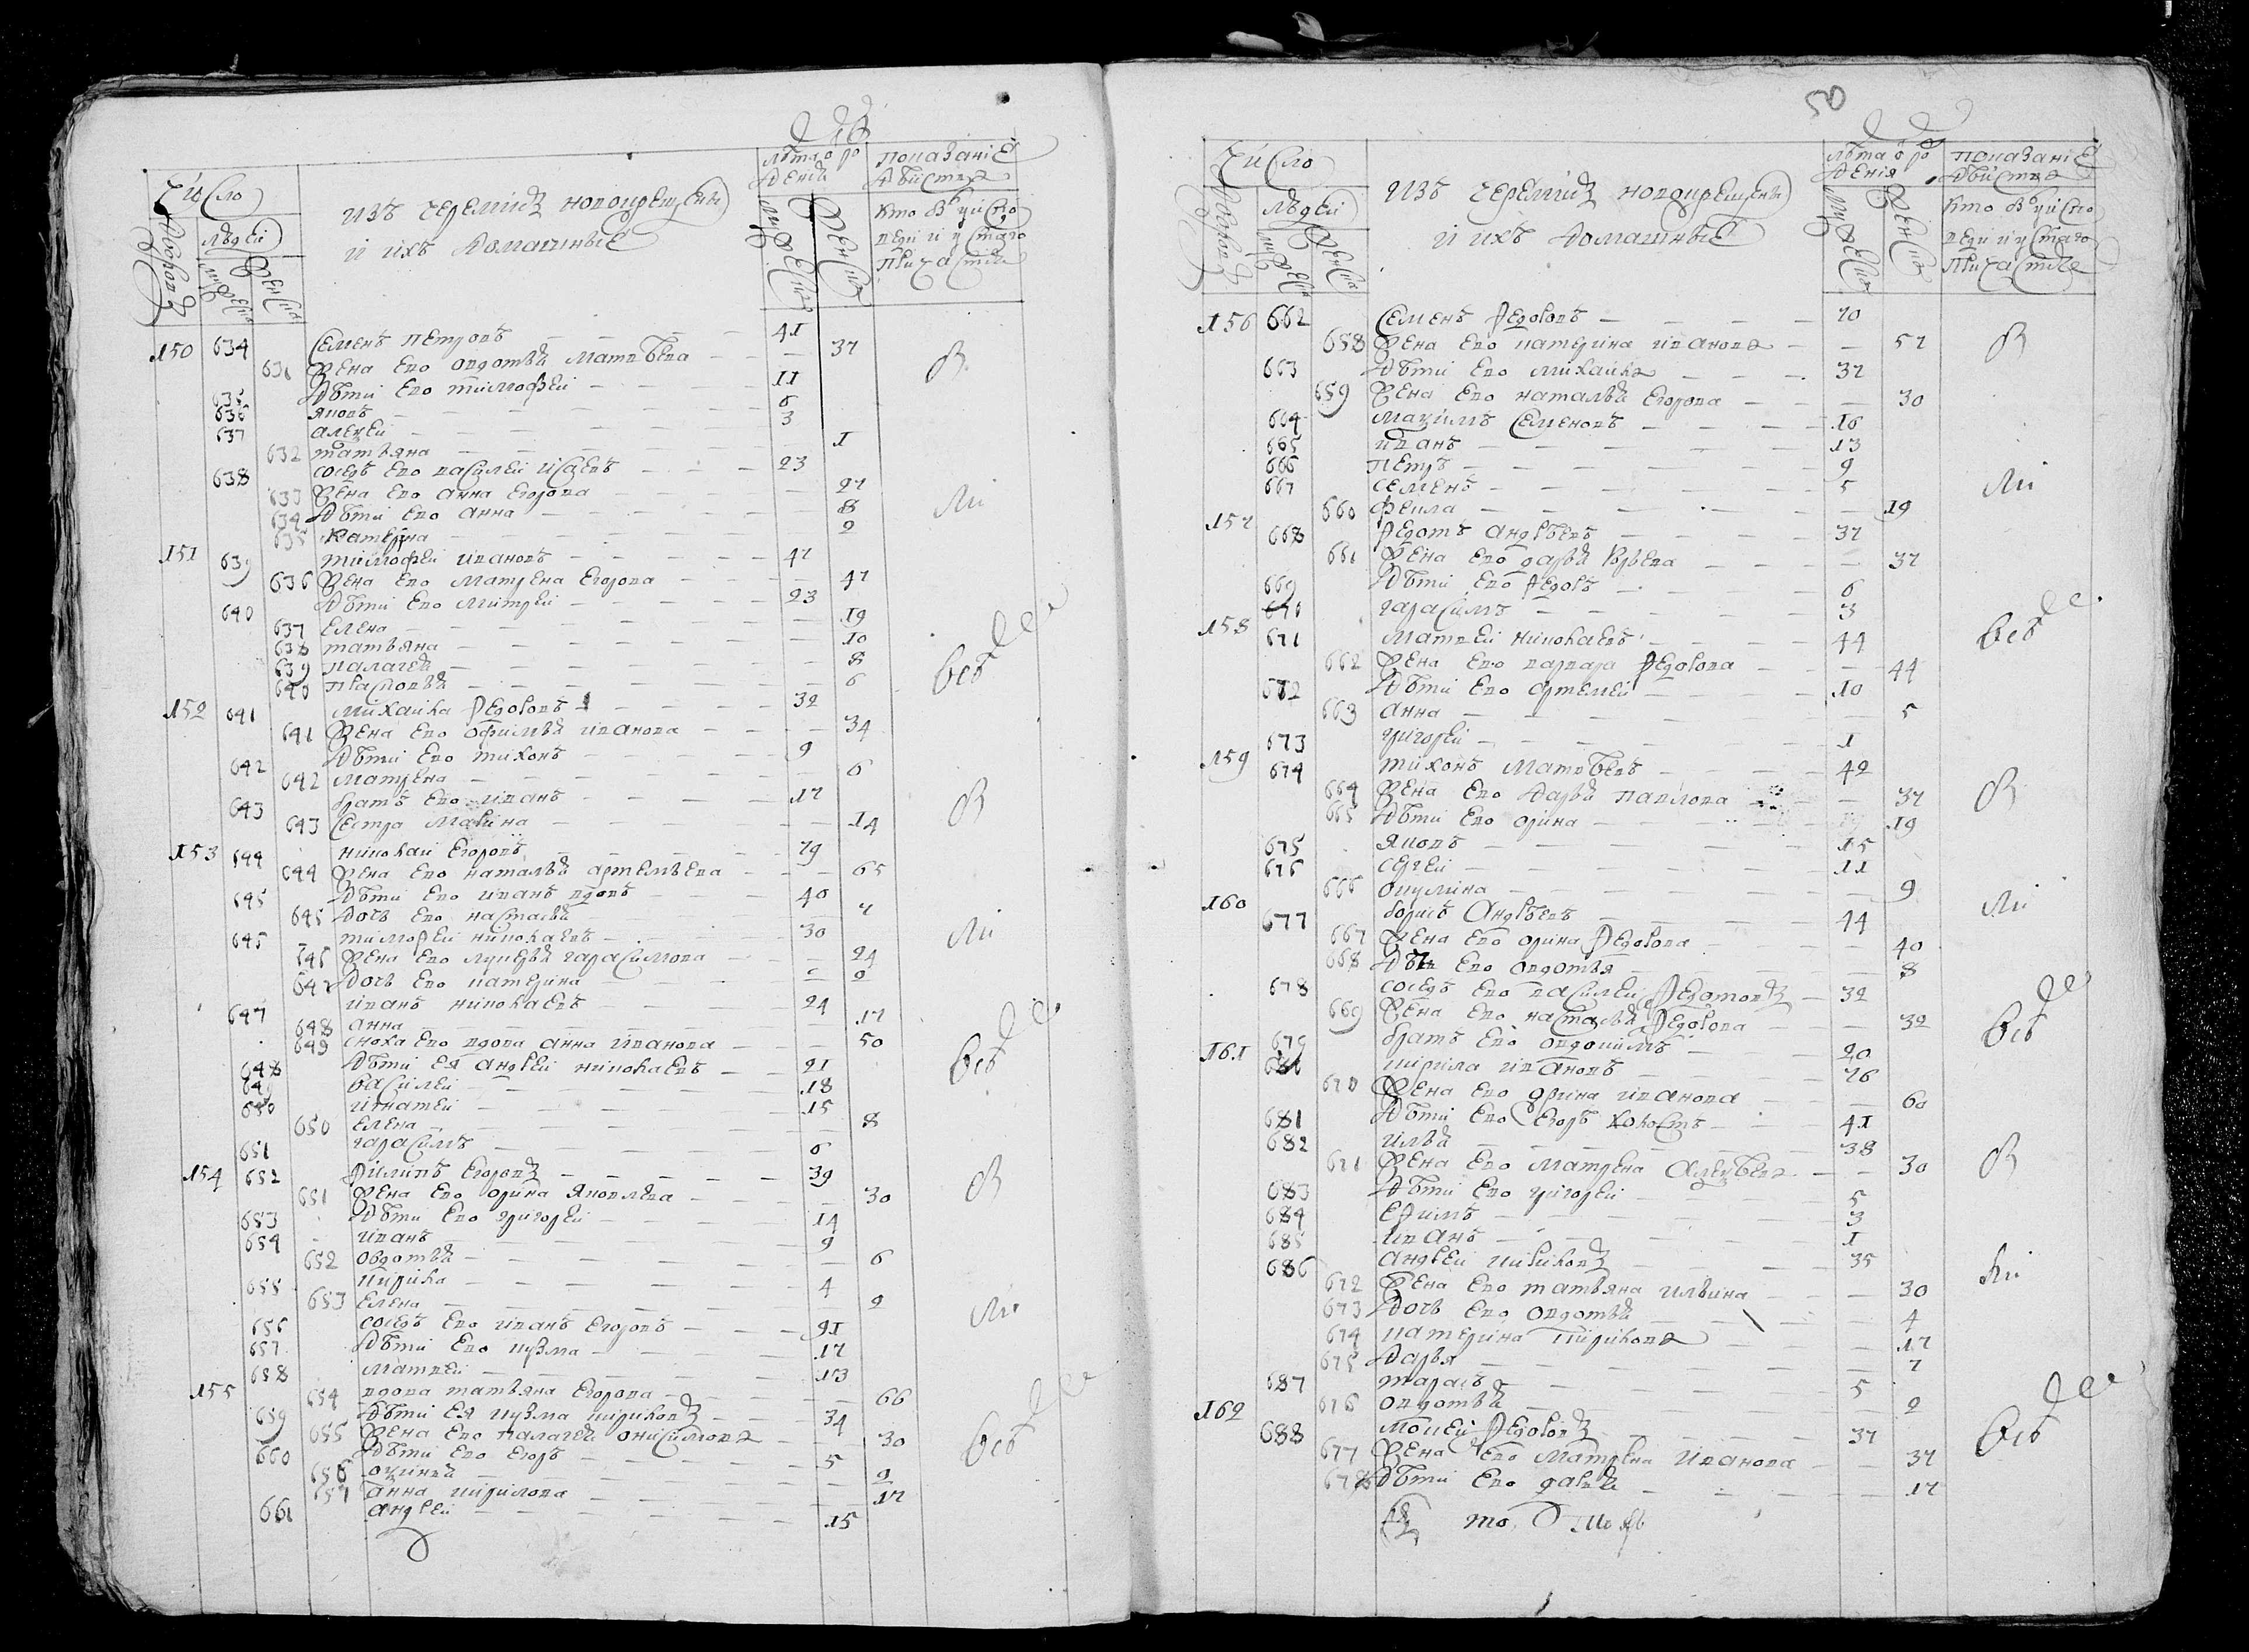 Число
Дворовъ
людей
мужеска
женска
изъ черемисъ новокрещены
и ихъ домашные
лѣта о ро
дения
мужеска
женска
показаніе
действа
кто былъ у испо
веди и у святаго
причастия
150 634 Семенъ Петровъ — 41
631 жена ево Овдотья Матвѣева — 37
635 дѣти ево Тимофей — 11
636 Яковъ — 6
637 Алексей — 3
632 Татьяна — 1
638 соседъ ево Василей Исаевъ — 23
633 жена ево Анна Егорова — 27
634 дѣти ево Анна — 8
635 Катерина — 2
151 639 Тимофей Ивановъ — 47
636 жена ево Матрена Егорова — 47
640 дѣти ево Митрей — 23
637 Елена — 19
638 Татьяна — 10
639 Палагея — 8
640 Прасковья — 6
152 641 Михайла Федоровъ — 32
641 жена ево Офимья Иванова — 34
642 дѣти ево Тихонъ — 9
642 Матрена — 6
643 братъ ево Иванъ — 17
643 сестра Марина — 14
153 644 Николай Егоровъ — 79
644 жена ево Наталья Артемьева — 65
645 дѣти ево Иванъ вдовъ — 40
645 дочь ево Настасья — 7
645 Тимофей Николаевъ — 30
646 жена ево Лукерья Гарасимова — 24
647 дочь ево Катерина — 2
647 Иванъ Николаевъ — 24
648 Анна — 17
649 сноха ево вдова Анна Иванова — 50
648 дѣти ея Андрей Николаевъ — 21
649 Василей — 18
650 Игнатей — 15
650 Елена — 8
651 Гарасимъ — 6
154 652 Филипъ Егоровъ — 39
651 жена ево Орина Яковлева — 30
653 дѣти ево Григорей — 14
654 Иванъ — 9
652 Овдотья — 6
655 Кирила — 4
653 Елена — 2
656 соседъ ево Иванъ Егоровъ — 91
657 дѣти ево Кузма — 17
658 Матвей — 13
155 654 вдова Татьяна Егорова — 66
659 дѣти ея Кузма Кириловъ — 34
655 жена ево Палагея Онисимова — 30
660 дѣти ево Егоръ — 5
656 Оксинья — 2
657 Анна Кирилова — 17
661 Андрей — 15
50
Число
Дворовъ
людей
мужеска
женска
изъ черемисъ новокрещены
и ихъ домашные
лѣта о ро
дения
мужеска
женска
показаніе
действа
кто былъ у испо
веди и у святаго
причастия
156 662 Семенъ Федоровъ — 70
658 жена ево Катерина Иванова — 57
663 дѣти ево Михайла — 37
659 жена ево Наталья Егорова — 30
664 Максимъ Семеновъ — 16
665 Иванъ — 13
666 Петръ — 9
667 Семенъ — 5
660 Фекла — 19
157 668 Федотъ Андрѣевъ — 37
661 жена ево Дарья Юрьева — 37
669 дѣти ево Федоръ — 6
670 Гарасимъ — 3
158 671 Матвей Николаевъ — 44
662 жена ево Варвара Федорова — 44
672 дѣти ево Артемей — 10
663 Анна — 5
673 Григорей — 1
159 674 Тихонъ Матвѣевъ — 42
664 жена ево Дарья Павлова — 37
665 дѣти ево Орина — 19
675 Яковъ — 15
676 Сергей — 11
666 Окулина — 9
160 677 Борисъ Андрѣевъ — 44
667 жена ево Орина Федорова — 40
668 дѣти ево Овдотья — 8
678 соседъ ево Василей Федотовъ — 32
669 жена ево Настасья Федорова — 32
679 братъ ево Овдокимъ — 20
161 680 Кирила Ивановъ — 76
670 жена ево Орина Иванова — 60
681 дѣти ево Егоръ холостъ — 41
682 Илья — 38
671 жена ево Матрена Алексѣева — 30
683 дѣти ево Григорей — 5
684 Ефимъ — 3
685 Иванъ — 1
686 Андрей Кириловъ — 35
672 жена ево Татьяна Ильина — 30
673 дочь ево Овдотья — 4
674 Катерина Кирилова — 17
675 Дарья — 7
687 Тарасъ — 5
676 Овдотья — 2
162 688 Мосей Федоровъ — 37
677 жена ево Матрена Иванова — 37
678 дѣти ево Дарья — 17